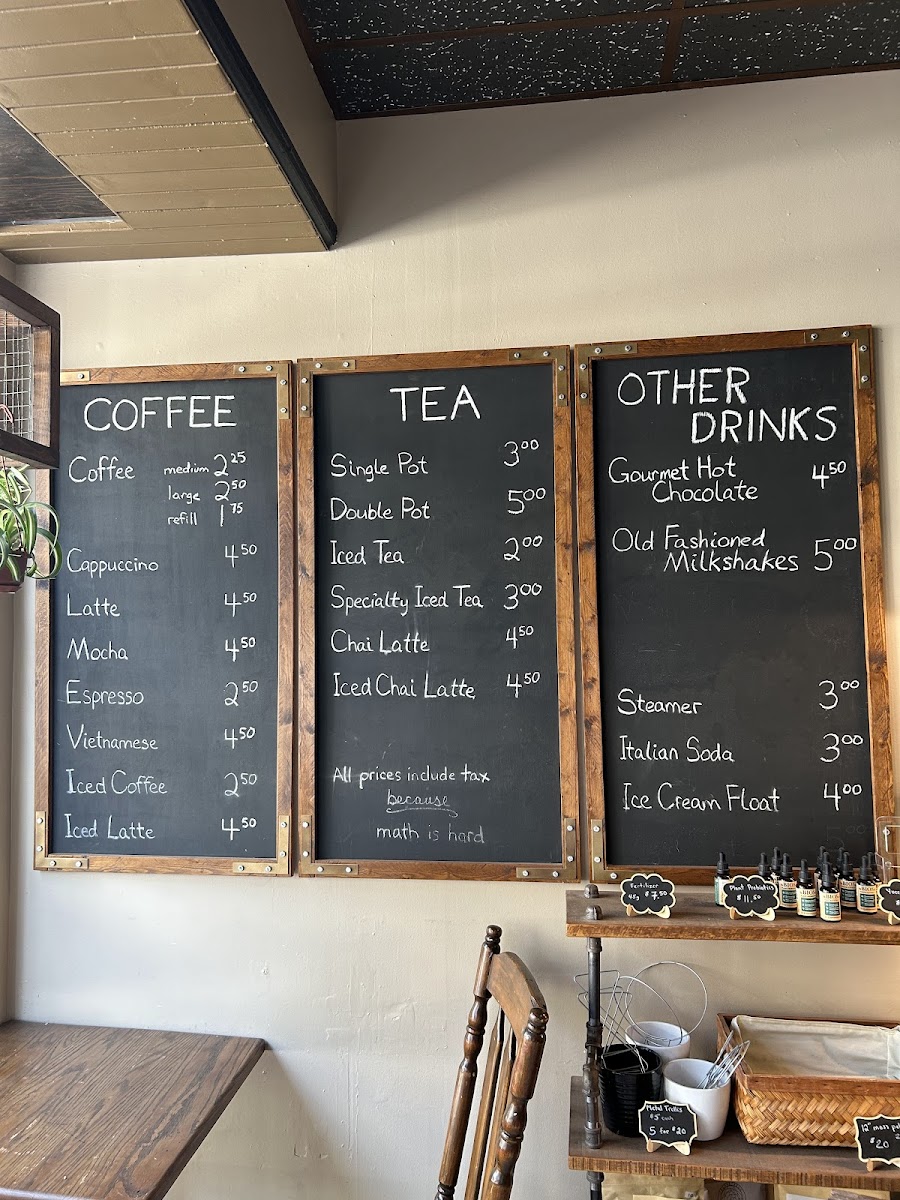 COFFEE
Coffee medium 2.25
large 2.50
refill 1.75
Cappuccino 4.50
Latte 4.50
Mocha 4.50
Espresso 2.50
Vietnamese 4.50
Iced Coffee 2.50
Iced Latte 4.50
TEA
Single Pot 3.00
Double Pot 5.00
Iced Tea 2.00
Specialty Iced Tea 3.00
Chai Latte 4.50
Iced Chai Latte 4.50
All prices include tax
because
math is hard
OTHER
DRINKS
Gourmet Hot
Chocolate 4.50
Old Fashioned
Milkshakes 5.00
Steamer 3.00
Italian Soda 3.00
Ice Cream Float 4.00
Fertilizer
$7.50
Plant Probiotics
$11.50
Metal Trellis
$5 each
5 for $20
12" moss
$20